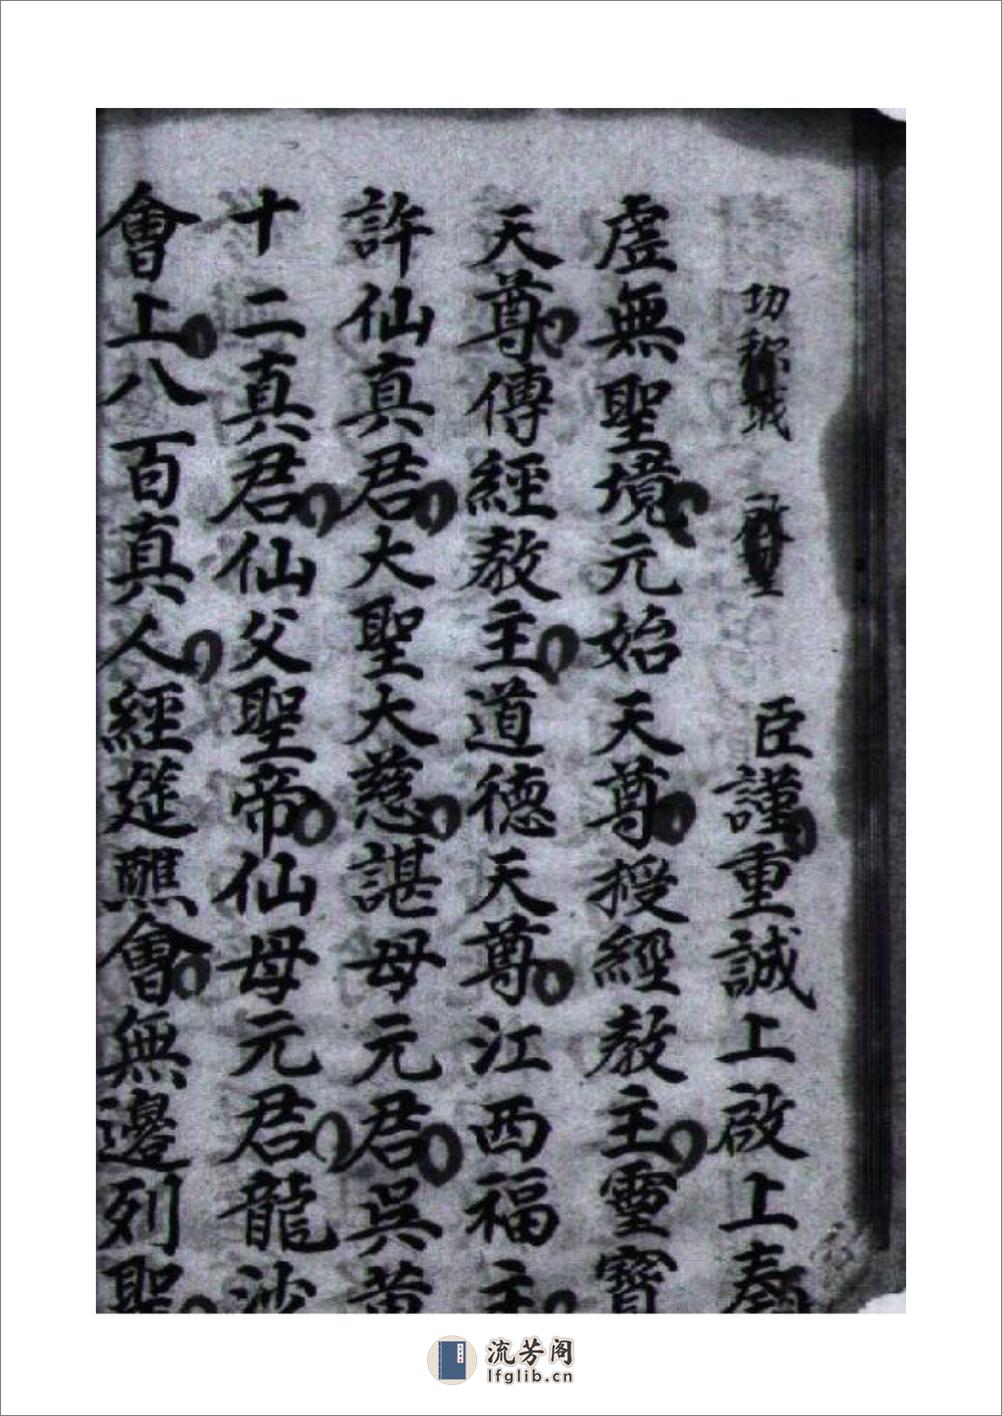 功称職 啟聖 臣謹重誠上啟上奏
虛無聖境元始天尊授經教主靈寶
天尊傳經教主道德天尊江西福主
許仙真君大聖大慈諶母元君吳黃
十二真君仙父聖帝仙母元君龍沙
會上八百真人經筵醮會無邊列聖
流芳阁
lfglib.cn